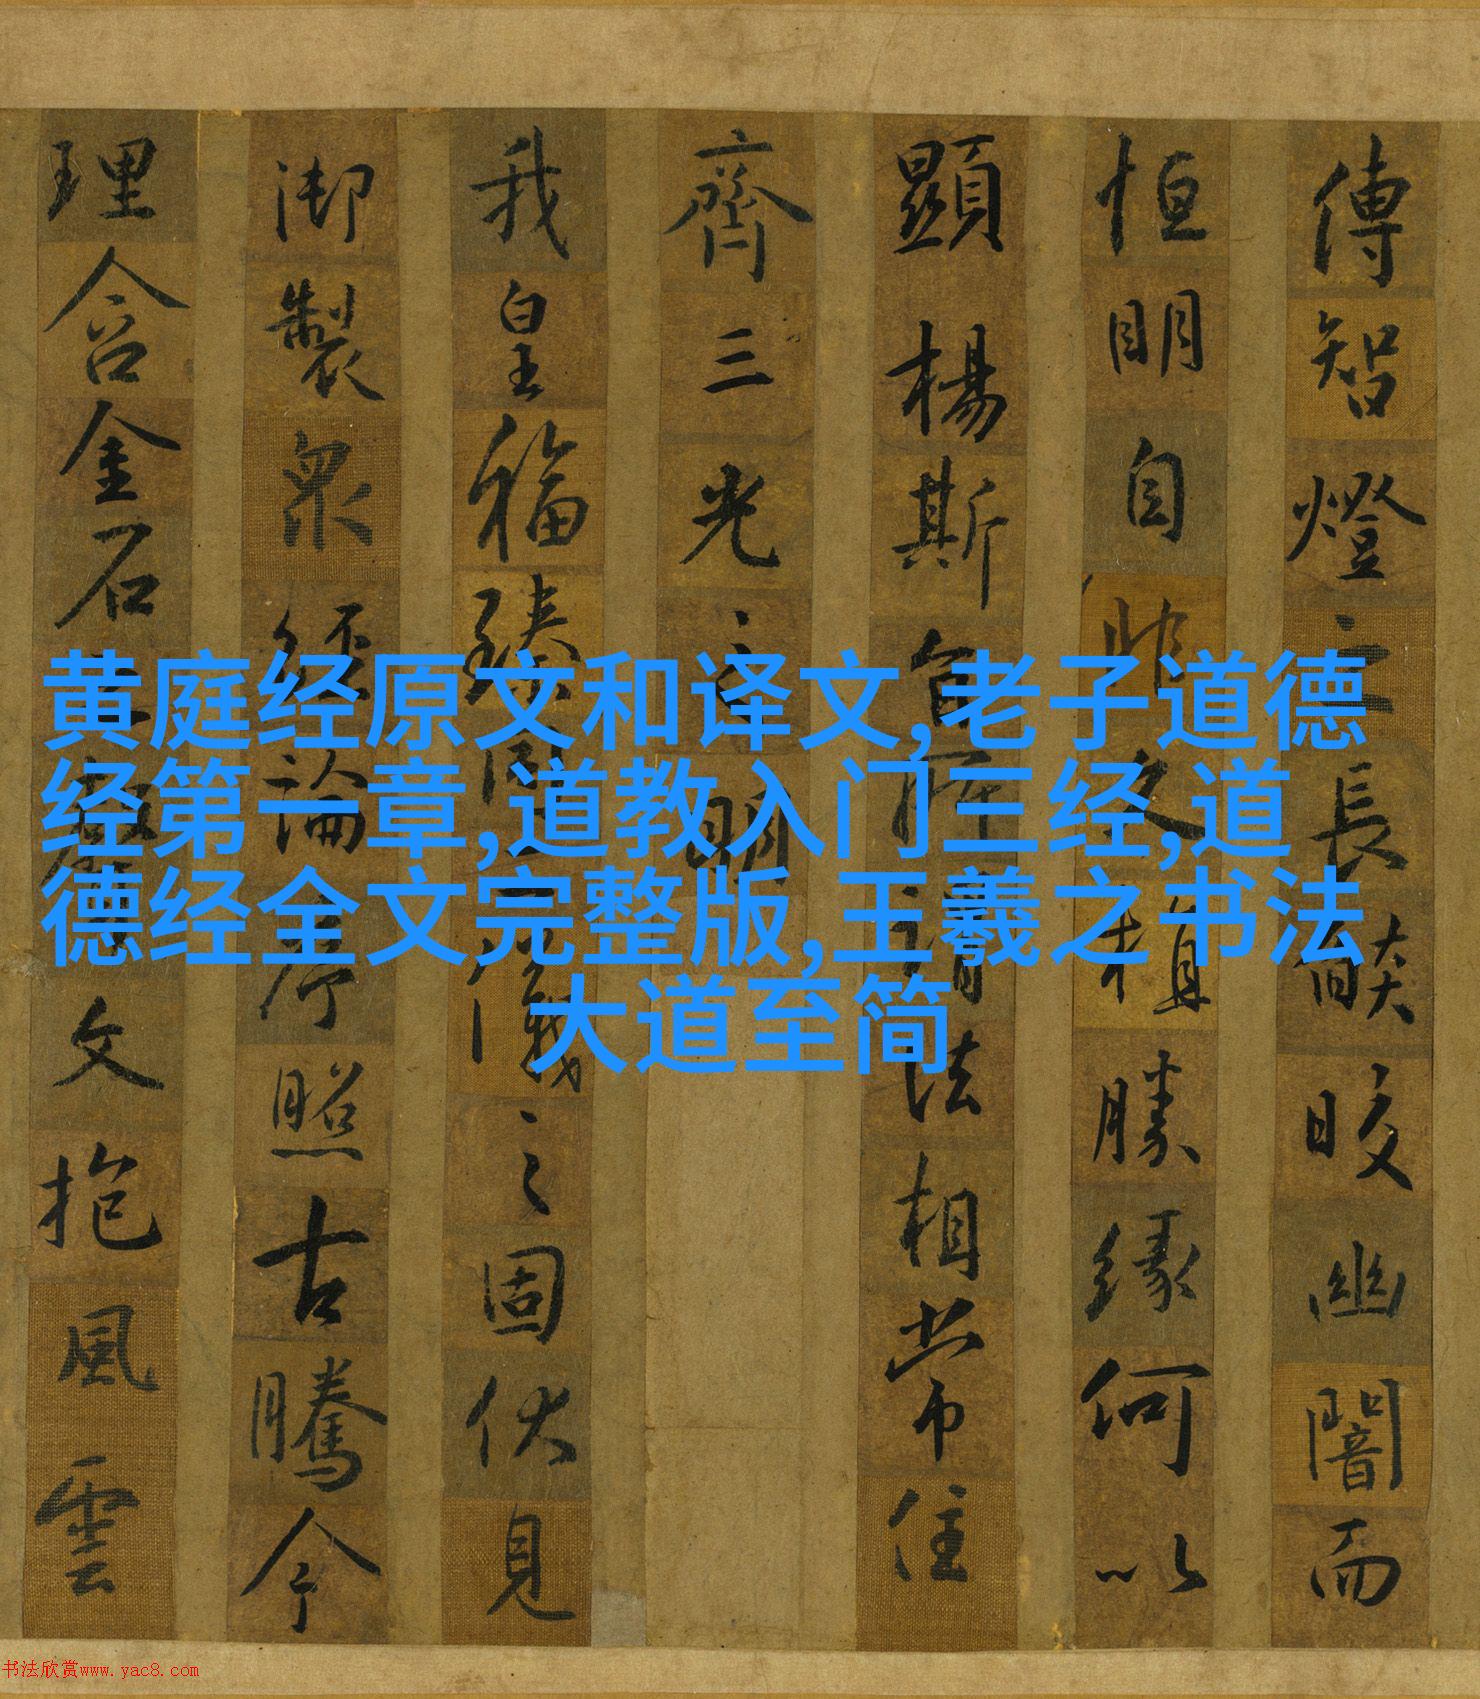 傳智燈之長燄皎幽闇而
恒明自非久植勝緣何以
顯楊斯旨所謂法相常住
齊三光之明
我皇福臻同儀之固伏見
御製眾經論序照古騰今
理含金石文抱風雲
黄庭经原文和译文,老子道德
经第一章,道教入门三经,道
德经全文完整版,王羲之书法
大道至简
书法欣赏www.yac8.com